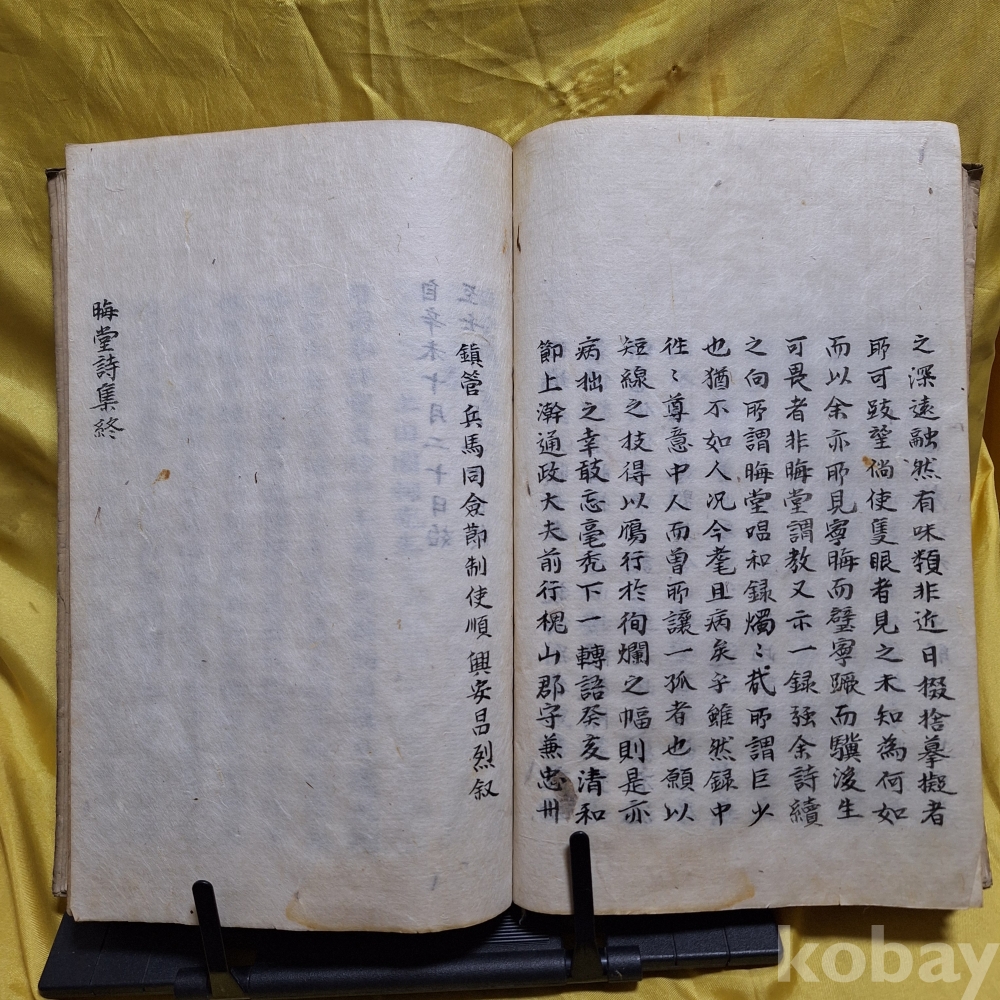 之深遠融然有味類非近日掇拾摹擬者
所可跂望倘使隻眼者見之未知為何如
而以余亦所見寧晦而璧寧蹶而驥後生
可畏者非晦堂謂敎又示一録强余詩續
之向所謂晦堂唱和録燭〻㢤所謂巨少
也猶不如人况今耄且病矣乎雖然録中
徃〻尊意中人而曾所讓一孤者也願以
短線之技得以鴈行於徇爛之幅則是亦
病拙之幸敢忘毫禿下一轉語癸亥清和
節上澣通政大夫前行槐山郡守兼忠州
鎭管兵馬同僉節制使順興安昌烈叙
晦堂詩集終
自辛未十月二十日始
至七
kobay